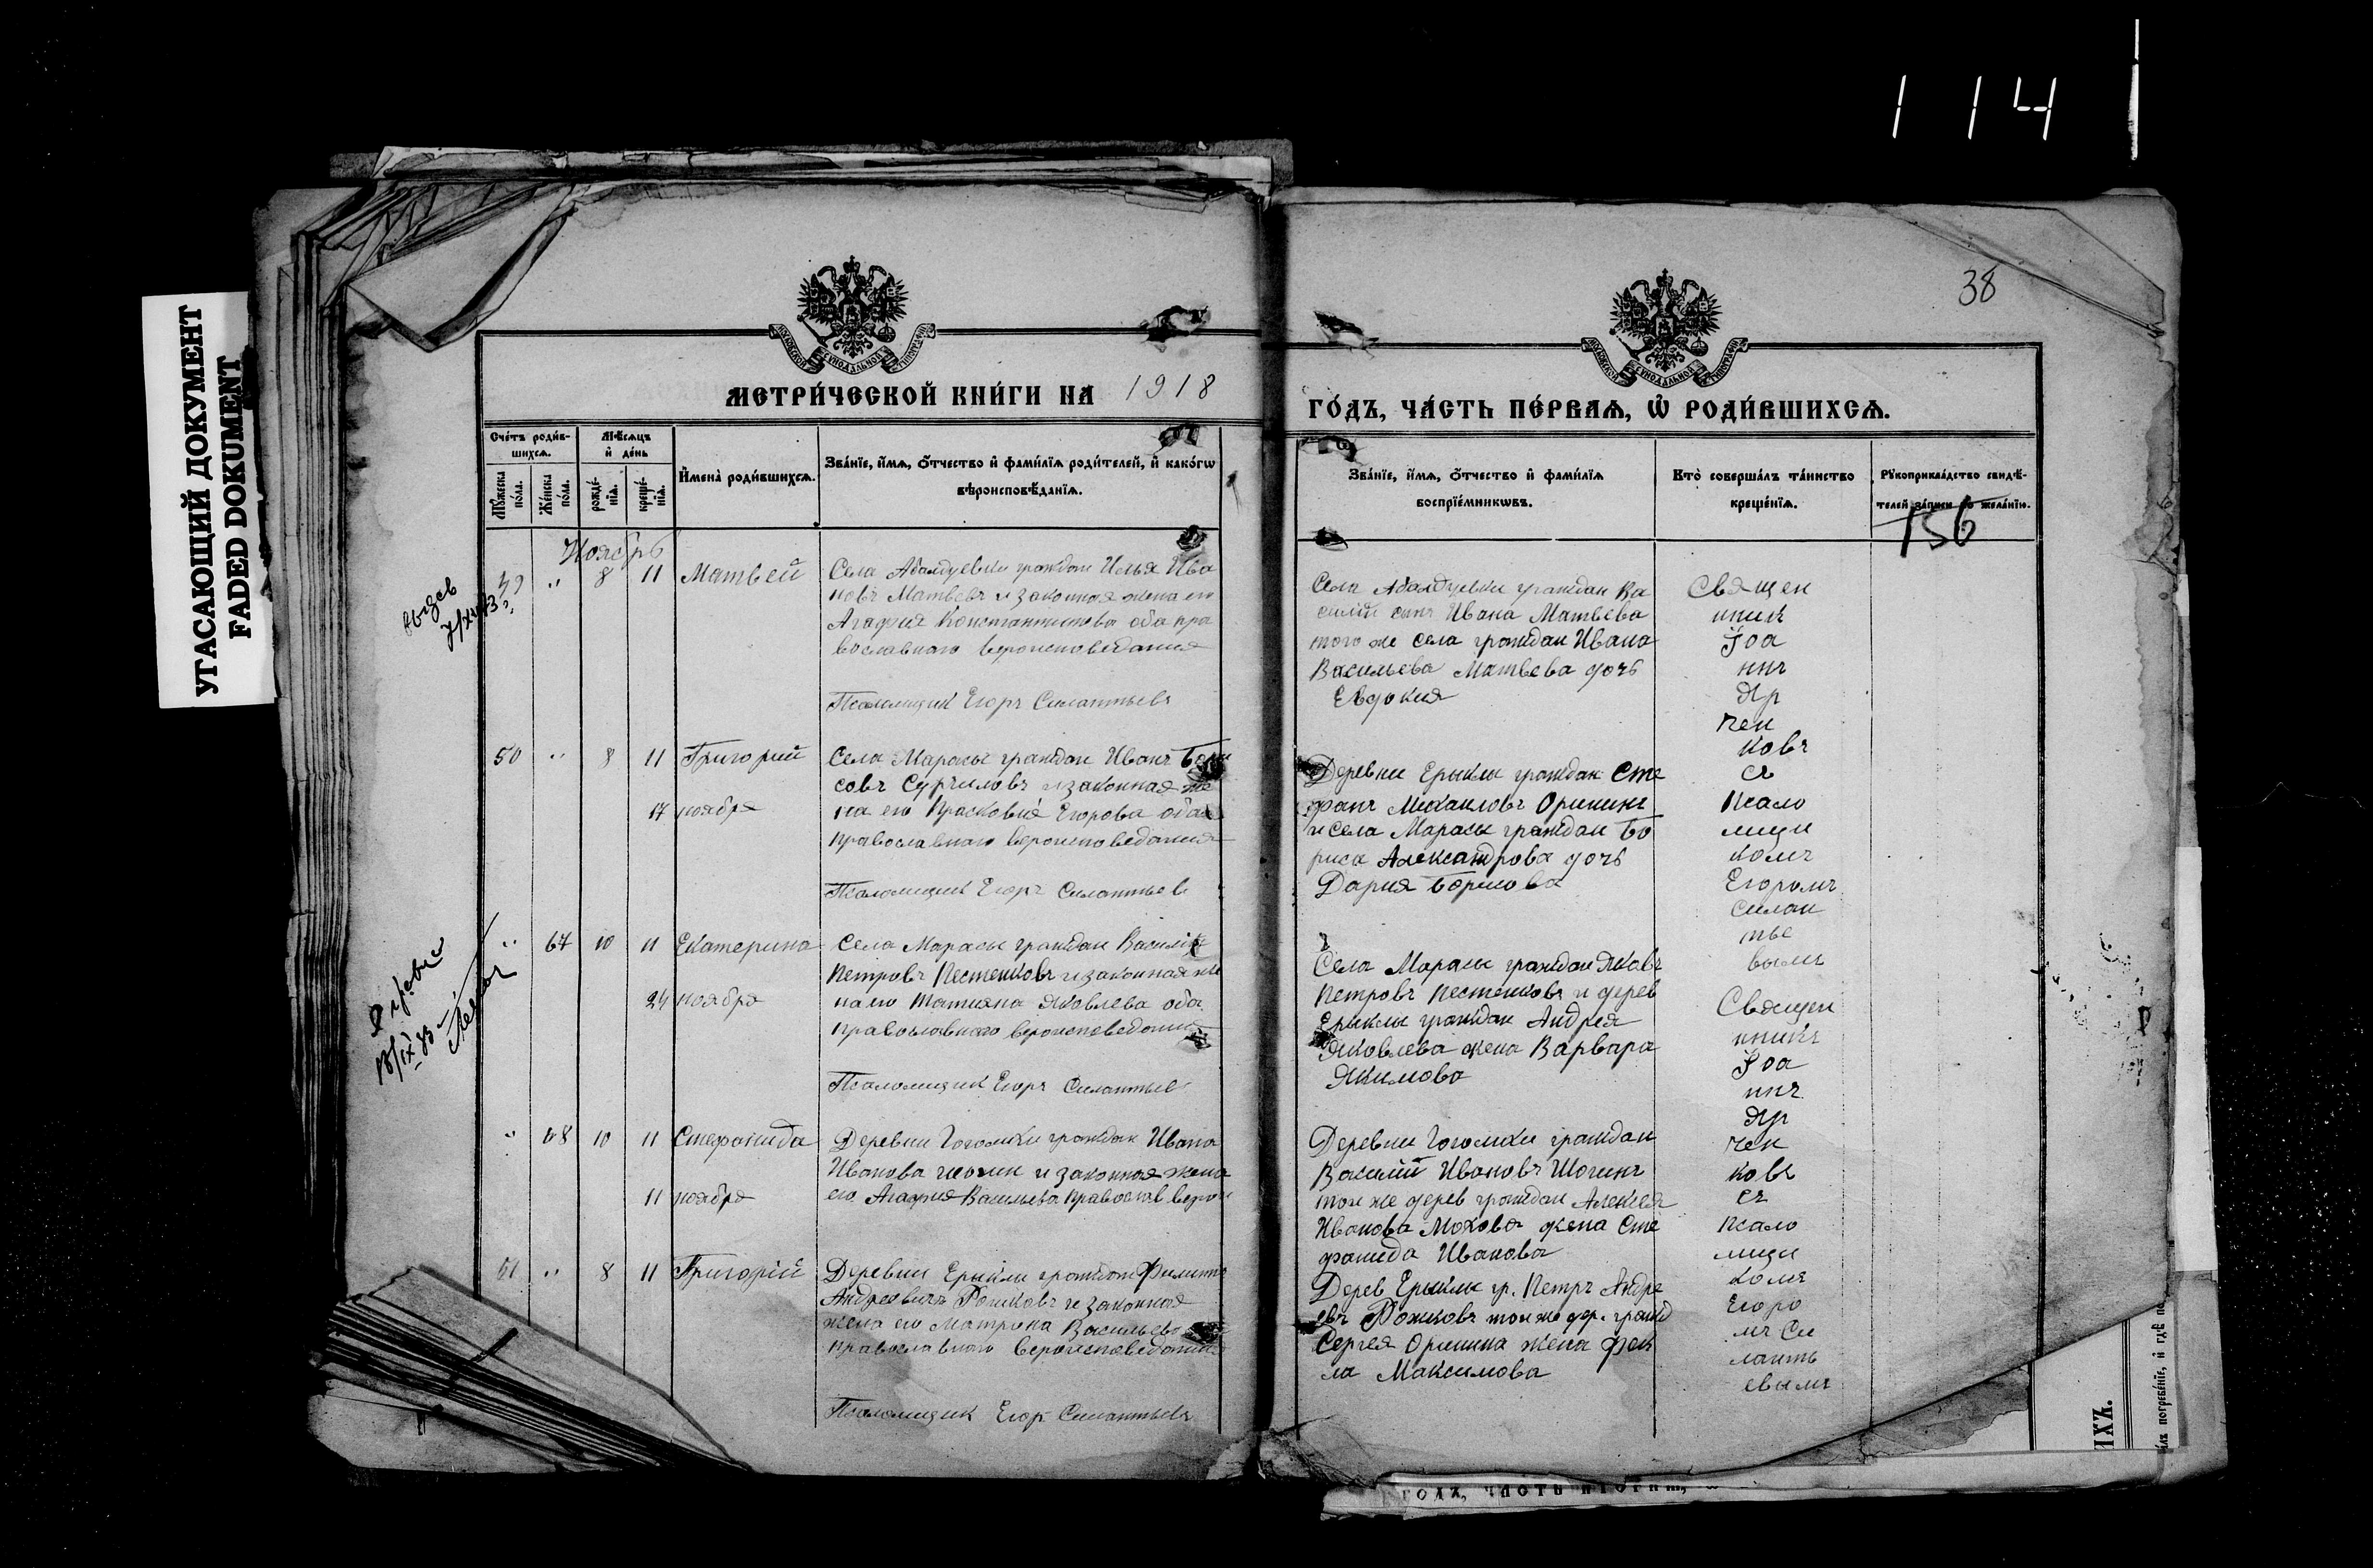 114
УГАСАЮЩИЙ ДОКУМЕНТ
FADED DOKUMENT
38
МЕТРИ́ЧЕСКОЙ КНИ́ГИ НА 1918
ГО́ДЪ, ЧА́СТЬ ПЕ́РВАѦ, Ѡ҆ РОДИ́ВШИХСѦ.
Сче́тъ роди́в-
шихсѧ.
Мѣ́сѧцъ
и҆ де́нь
Мꙋ́жеска по́ла.
Же́нска по́ла.
рожде́-нїѧ.
креще́-нїѧ.
И҆мена̀ роди́вшихсѧ.
Зва́нїе, и҆́мѧ, ѻ҆́тчество и҆ фами́лїѧ роди́телей, и҆ како́гѡ
вѣроисповѣ́данїѧ.
Зва́нїе, и҆́мѧ, ѻ҆́тчество и҆ фами́лїѧ
воспрїе́мникѡвъ.
Кто̀ соверша́лъ та́инство
креще́нїѧ.
Рꙋкоприкла́дство свидѣ́-
телей за́писи по жела́нїю.
156
Ноябрь
49 " 8 11 Матвей
Села Абалдуевки граждан Илья Ива
новъ Матвевъ и законная жена его
Агафия Константинова оба пра
вославного вероисповедания
Псаломщик Егоръ Силантьевъ
Села Абалдуевки граждан Ва
силий сынъ Ивана Матвева
того же села граждан Ивана
Васильева Матвева дочь
Евдокия
Священ
ник
Иоа
ннъ
Яр
чен
ковъ
съ
Псало
мщи
комъ
Егоромъ
Силан
тье
вымъ
50 " 8 11 Григорий
17 ноября
Села Марасы граждан Иванъ Бори
совъ Сурчиловъ и законная же
на его Прасковия Егорова оба
православного вероисповедания
Псаломщик Егоръ Силантьев
Деревни Ерыклы граждан Сте
фанъ Михаиловъ Оринин
и села Марасы граждан Бо
риса Александрова дочь
Дария Борисова
" 67 10 11 Екатерина
24 ноября
Села Марасы граждан Василий
Петровъ Пестенковъ и законная же
на его Татияна Яковлева оба
православного вероисповедания
Псаломщик Егоръ Силантьев
Села Марасы граждан Яковъ
Петровъ Пестенковъ и дерев
Ерыклы граждан Андрея
Яковлева жена Варвара
Якимова
Священ
никъ
Иоа
ннъ
Яр
чен
ковъ
съ
Псало
мщи
комъ
Егоро
мъ Си
лантъ
евымъ
" 68 10 11 Стефанида
11 ноября
Деревни Гоголихи граждан Ивана
Иванова и законная жена
его Агафия Васильева православ верои
Деревни Гоголихи граждан
Василий Ивановъ Шогинъ
той же дерев граждан Алексея
Иванова Мохова жена Сте
фанида Иванова
51 " 8 11 Григорий
Деревни Ерыклы граждан Филипп
Андреевичъ Рожковъ и законная
жена его Матрона Васильева
православного вероисповедания
Псаломщик Егор Силантьевъ
Дерев Ерыклы гр. Петръ Андре
евъ Рожковъ той же дер. гражд
Сергея Оринина жена Фек
ла Максимова
ИХЪ.
ГОДЪ, ЧАСТЬ ВТОРАЯ,